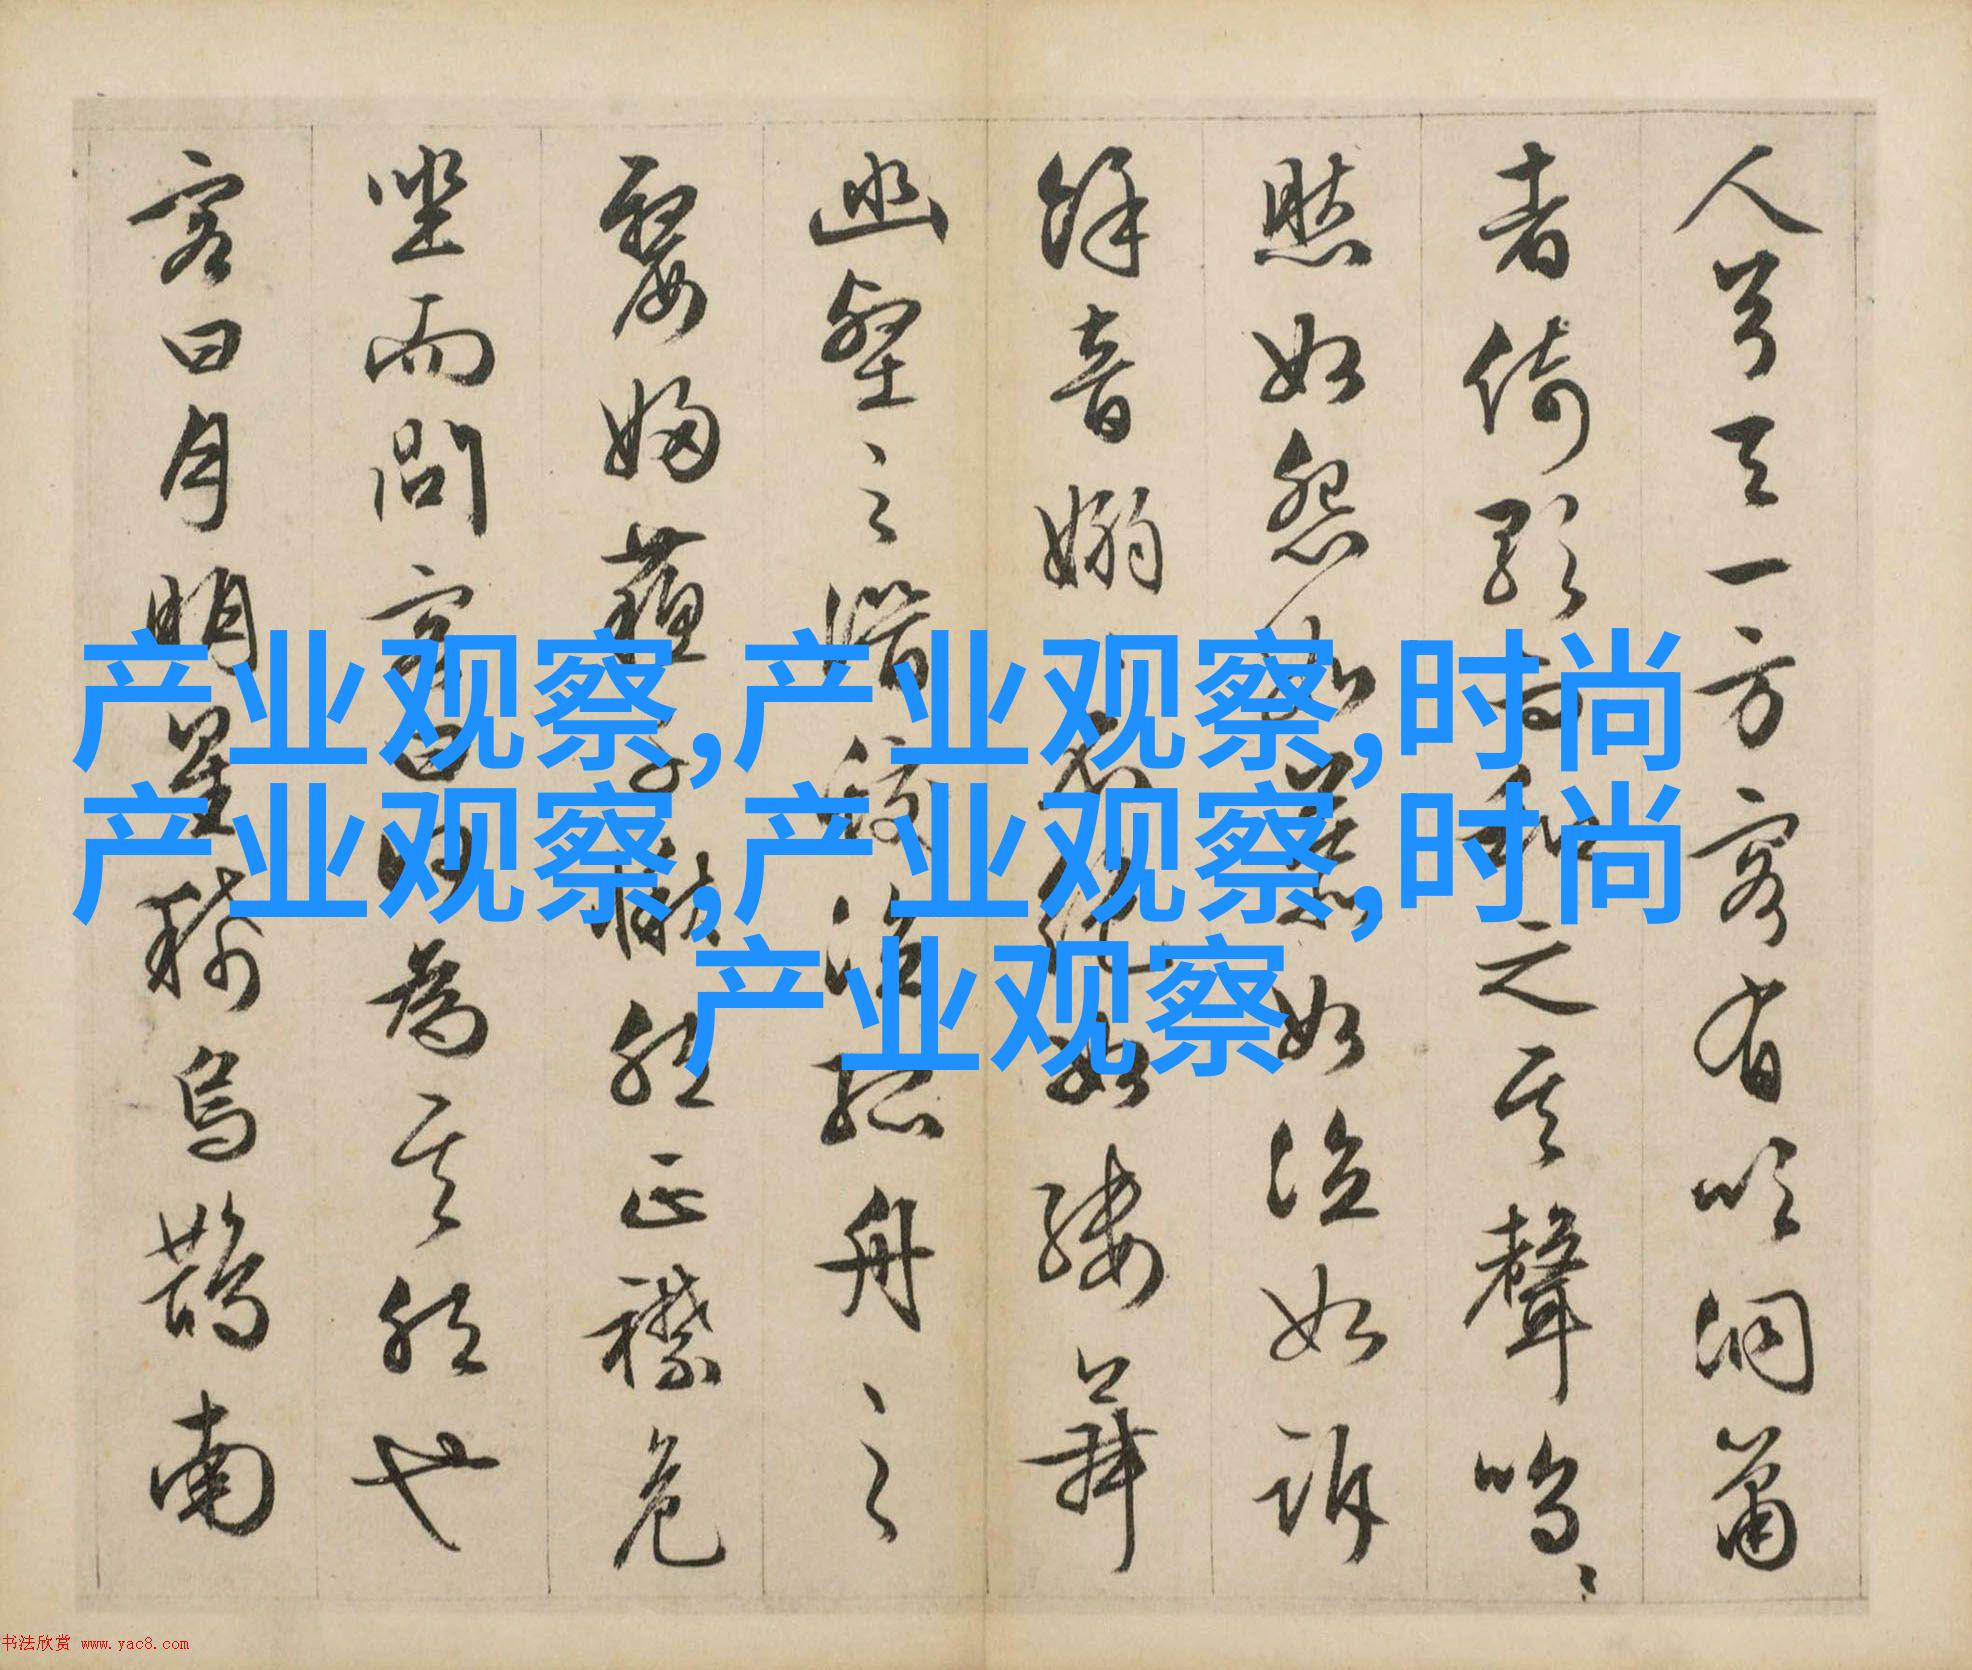 人兮天一方客有吹洞簫
者倚歌而和之其聲嗚〻
然如怨如慕如泣如訴
餘音嫋〻不絕如縷舞
幽壑之潛蛟泣孤舟之
嫠婦蘇子愀然正襟危
坐而問客曰何為其然也
客曰月明星稀烏鵲南
产业观察,产业观察,时尚
产业观察,产业观察,时尚
产业观察
书法欣赏 www.yac8.com